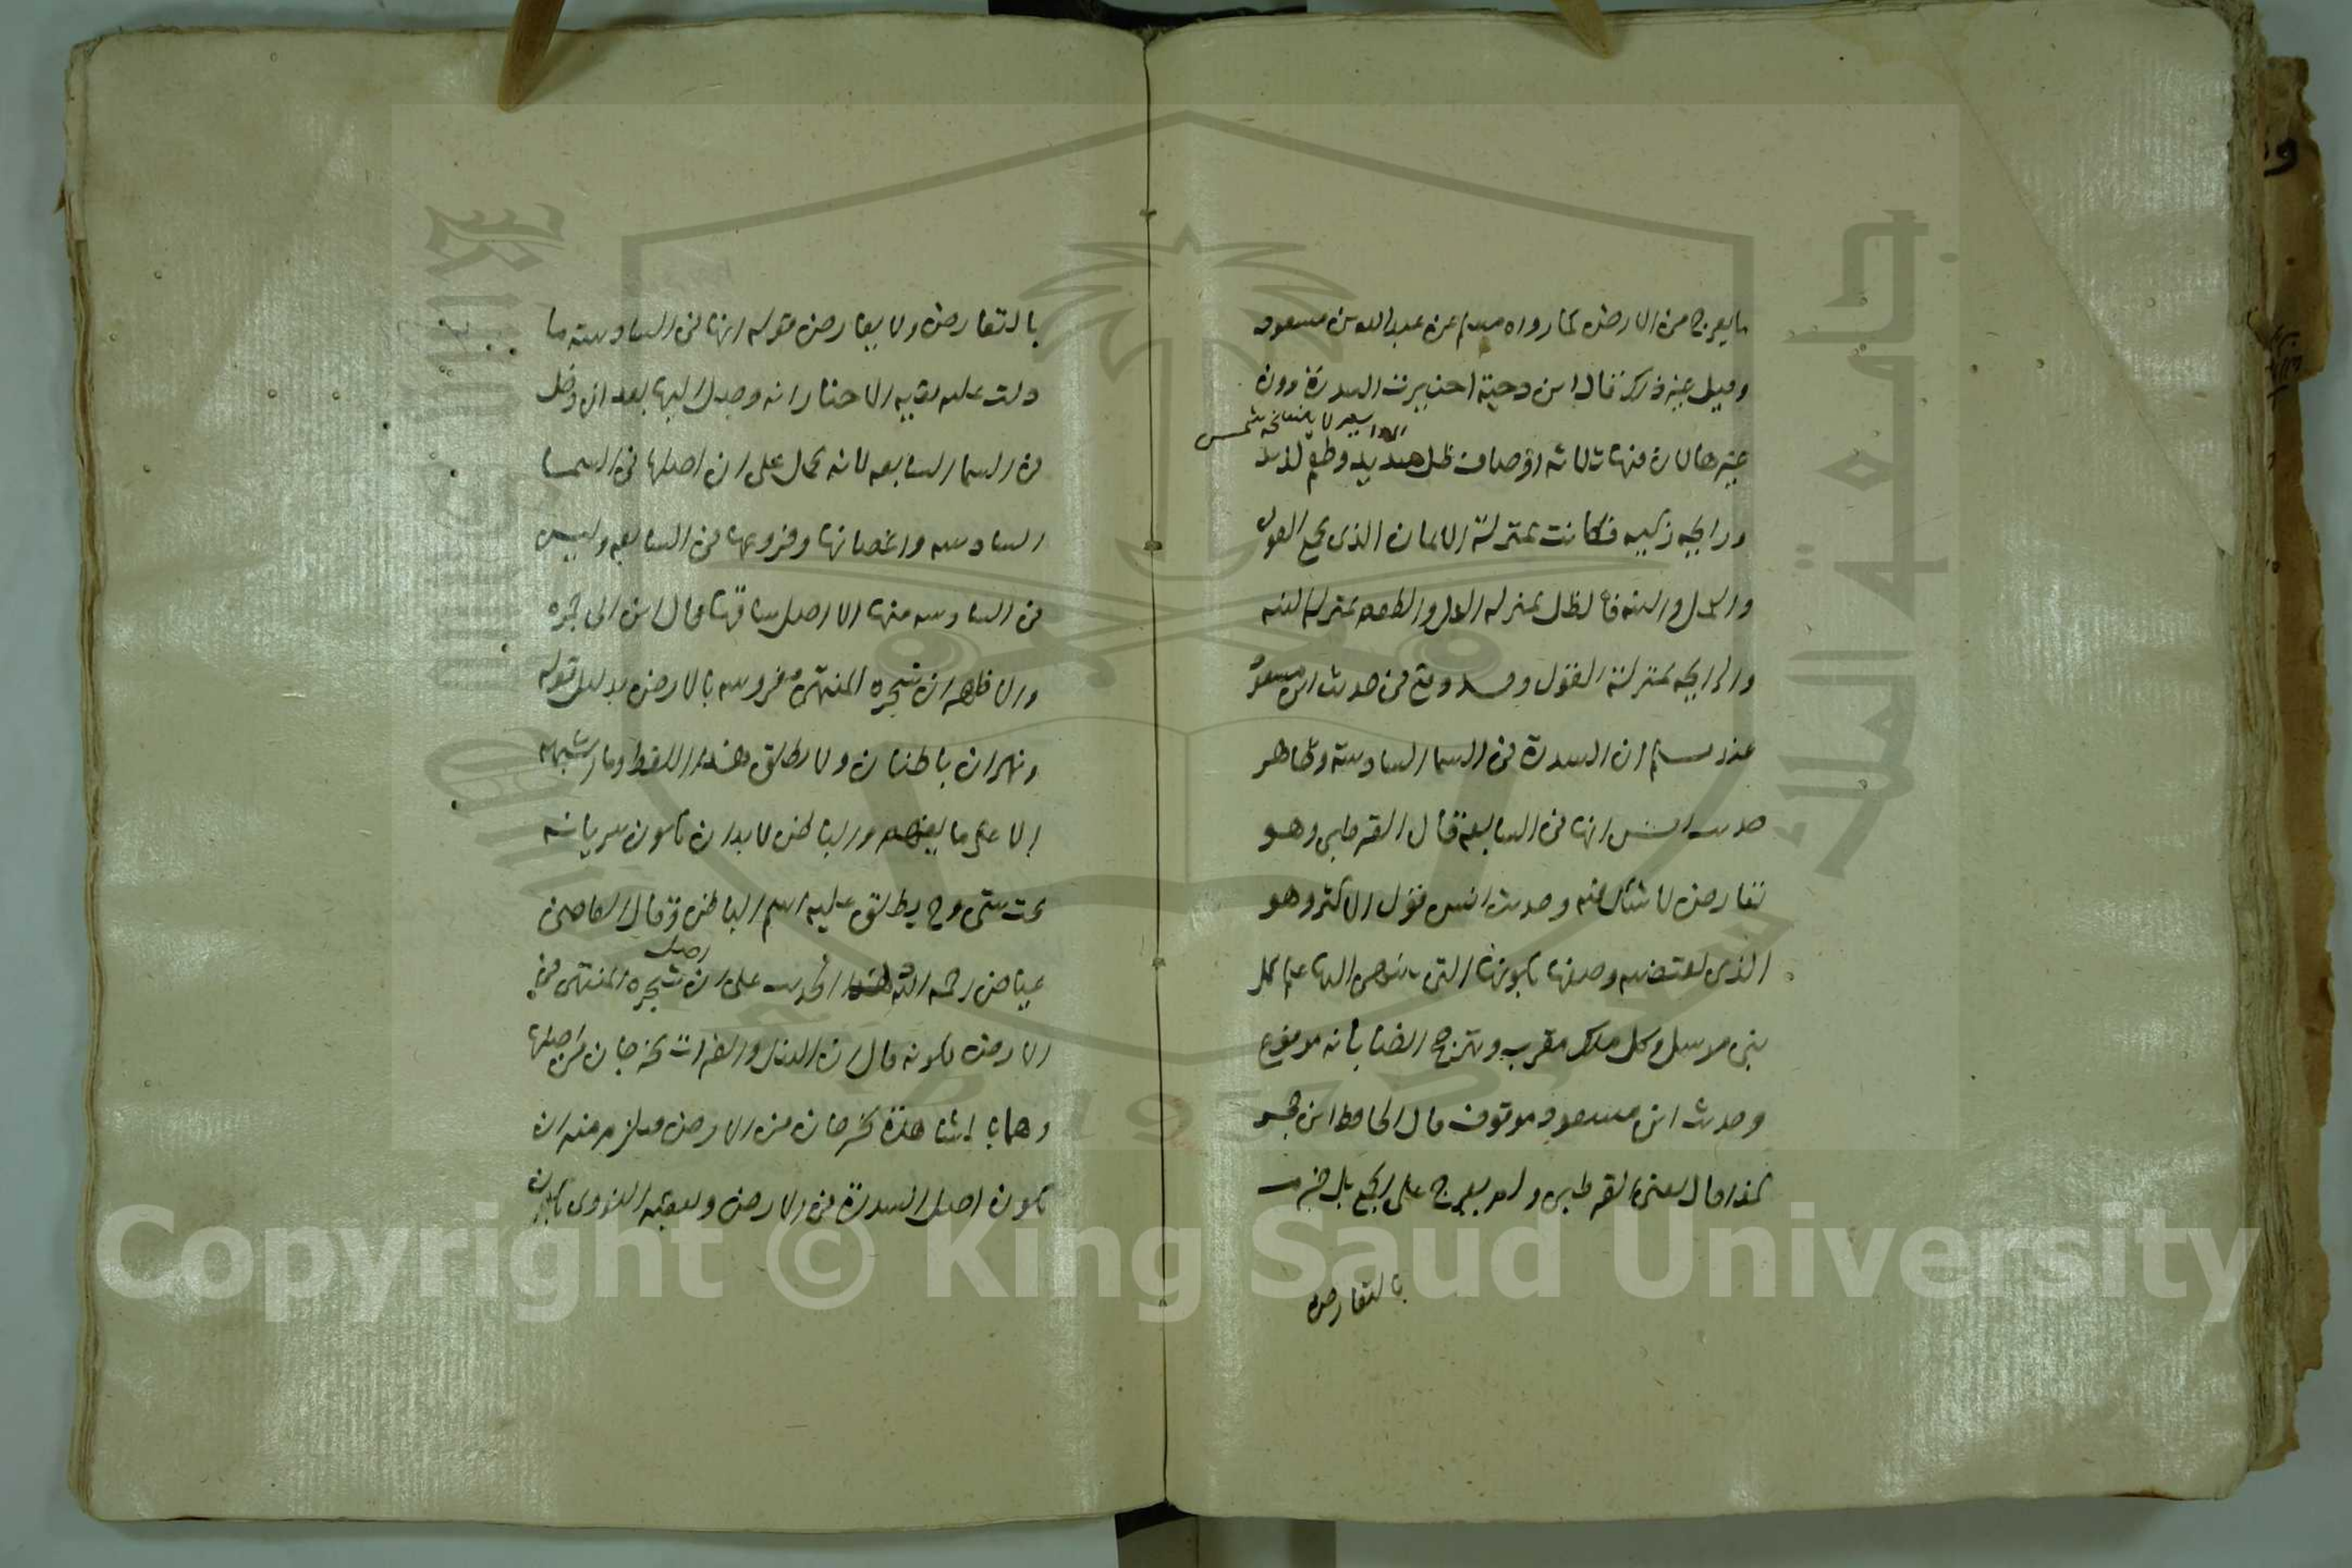 ما يعرج من الارض كما رواه مسلم عن عبد الله بن مسعود
وقيل غير ذلك قال ابن دحية اختيرت السدرة دون
غيرها لان فيها ثلاثة اوصاف ظل مديد وطعم لذيذ
ورايحه زكيه فكانت بمنزلة الايمان الذي يجمع القول
والعمل والنيه فالظل بمنزله العمل والطعم بمنزله النيه
والرايحه بمنزلة القول وقد وقع في حديث ابن مسعود
عند مسلم ان السدرة في السما السادسة وظاهر
حديث انس انها في السابعة قال القرطبي وهو
تعارض لا شك فيه وحديث انس قول الاكثر وهو
الذي يقتضيه وصفها بكونها التي ينتهي اليها علم كل
نبي مرسل وكل ملك مقرب ويترجح ايضا بانه مرفوع
وحديث ابن مسعود موقوف قال الحافظ ابن حجر
كذا قال يعني القرطبي ولم يعرج على الجمع بل جزم
بالتعارض
بالتعارض ولا يعارض قوله انها في السادسة ما
دلت عليه بقيه الاخبار انه وصل اليها بعد ان دخل
في السما السابعه لانه يحمل على ان اصلها في السما
السادسه واغصانها وفروعها في السابعه وليس
في السادسه منها الا اصل ساقها قال ابن ابي جمره
والاظهر ان شجره المنتهى مغروسه بالارض بدليل قوله
ونهران باطنان ولا يطلق هذا اللفظ وما اشبهه
الا على ما يفهم والباطن لا بد ان يكون سريانه
تحت شي وح يطلق عليه اسم الباطن وقال القاضي
عياض رحمه الله الحديث على ان اصل شجره المنتهى في
الارض لكونه قال ان النيل والفرات يخرجان من اصلها
وهما بالمشاهدة يخرجان من الارض فيلزم منه ان
يكون اصل السدرة في الارض وتعقبه النووي بان
Copyright © King Saud University